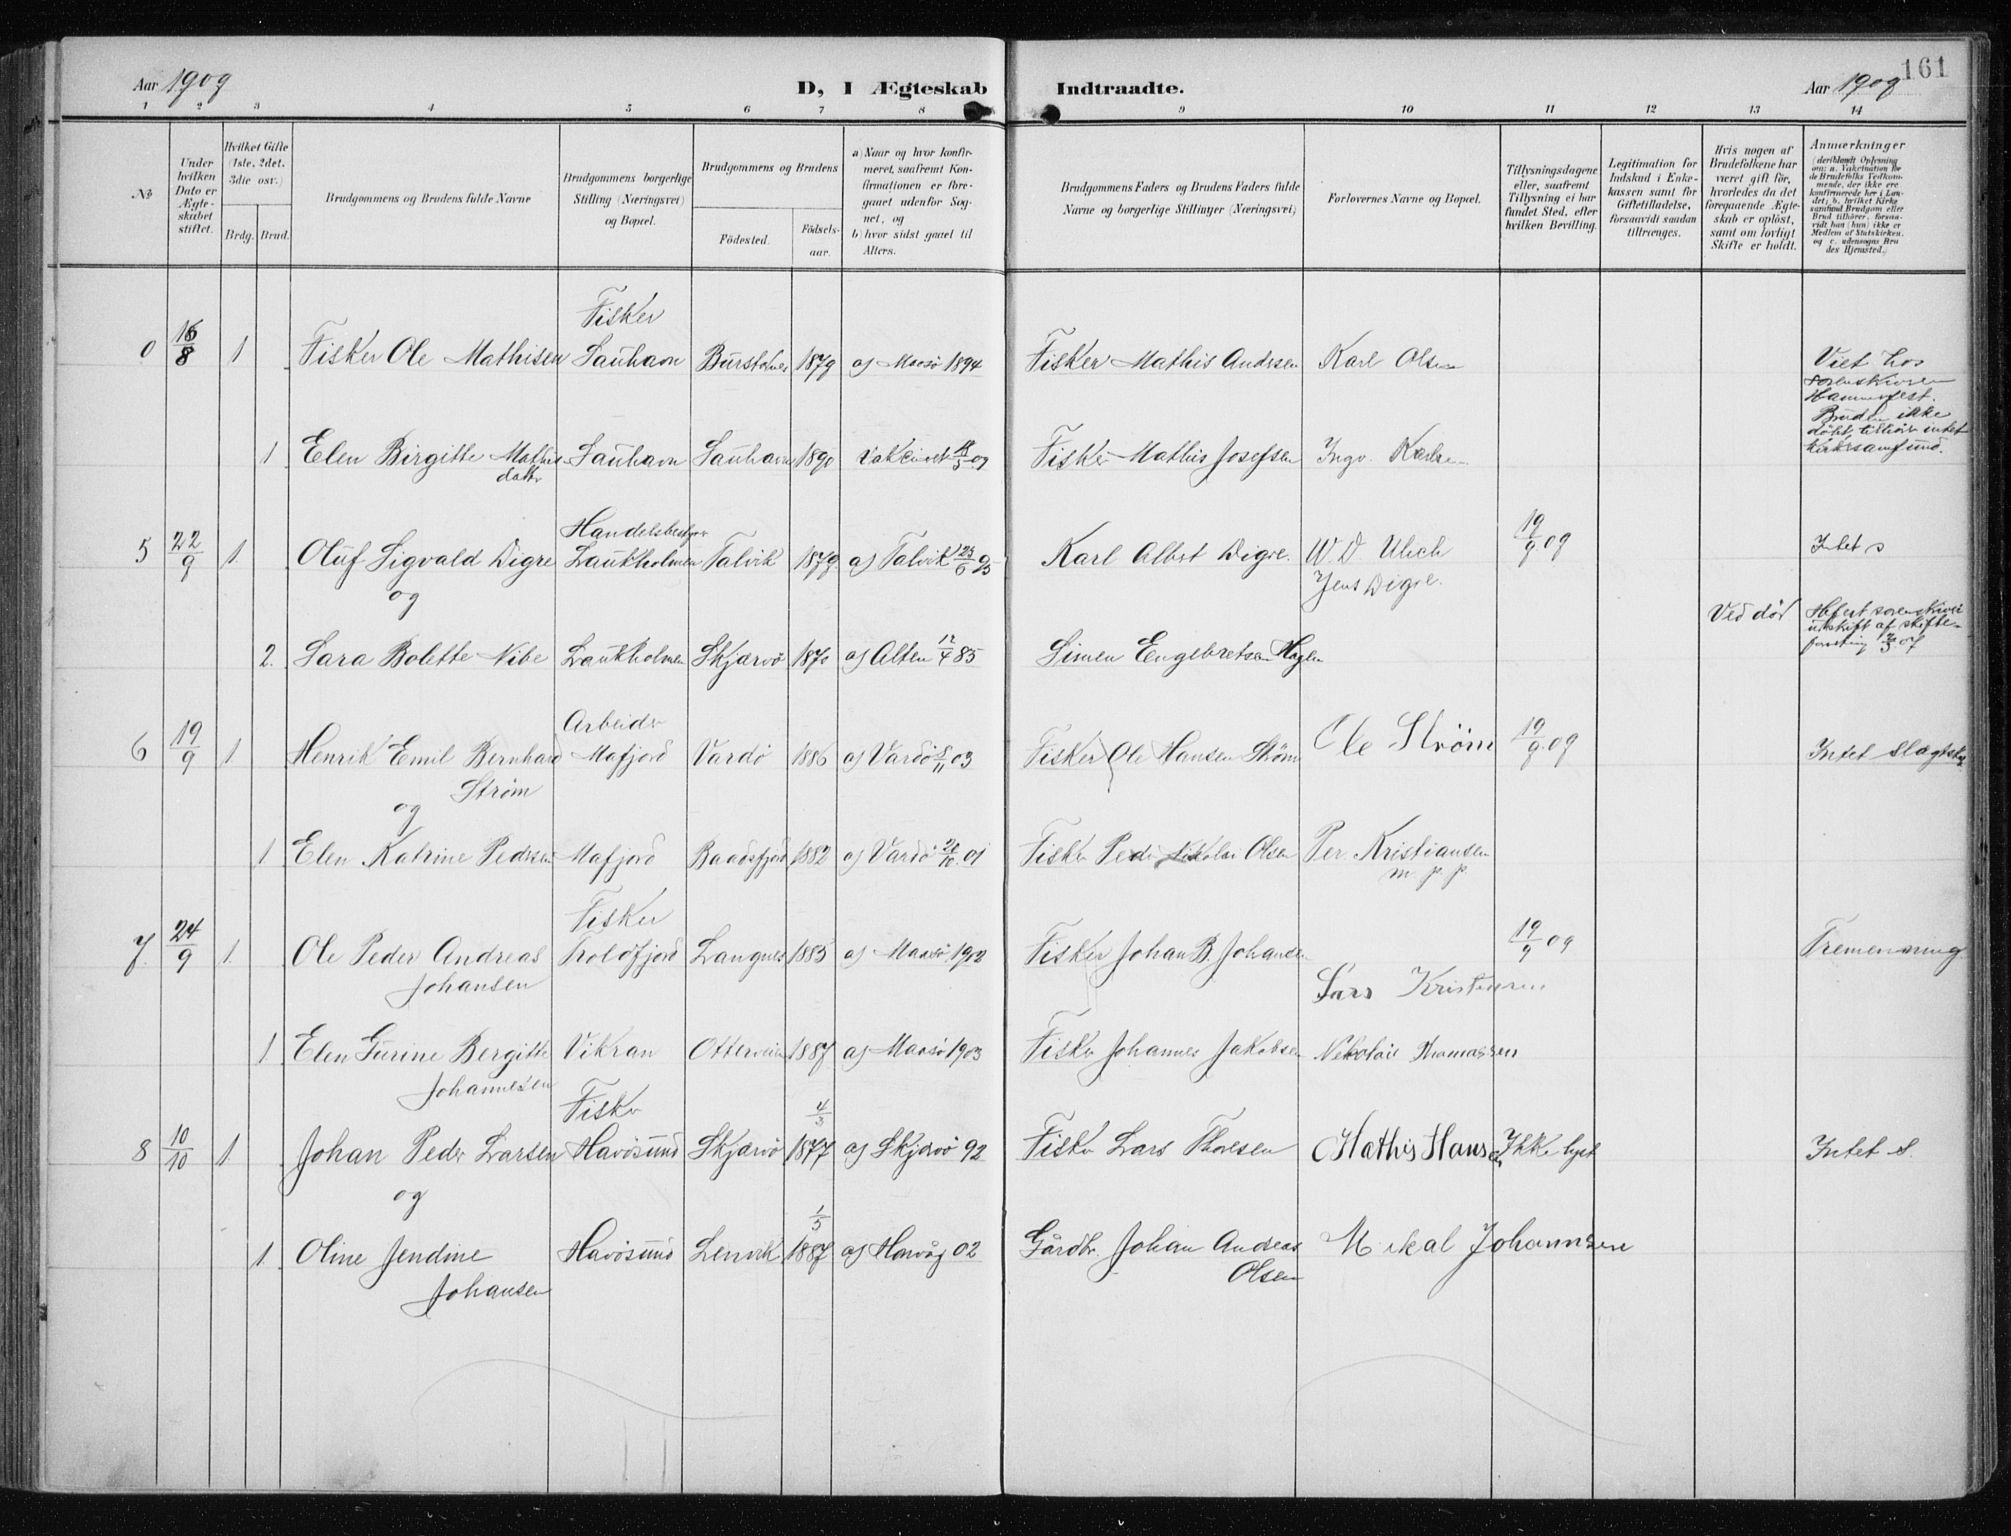 161
Aar 1909
D, I Ægteskab Indtraadte.
Aar 1909
1 2 3 4 5 6 7 8 9 10 11 12 13 14
No
Under hvilken Dato er Ægteskabet stiftet.
Hvilket Gifte (1ste, 2det, 3die osv.)
Brdg. Brud.
Brudgommens og Brudens fulde Navne
Brudgommens borgerlige Stilling (Næringsvei) og Bopæl.
Brudgommens og Brudens
Födested.
Födselsaar.
a) Naar og hvor konfirmeret, saafremt Konfirmationen er foregaaet udenfor Sognet, og
b) hvor sidst gaaet til Alters.
Brudgommens Faders og Brudens Faders fulde Navne og borgerlige Stillinger (Næringsvei)
Forlovernes Navne og Bopæl.
Tillysningsdagene eller, saafremt Tillysning ei har fundet Sted, efter hvilken Bevilling.
Legitimation for Indskud i Enkekassen samt for Giftetilladelse, forsaavidt saadan tiltrænges.
Hvis nogen af Brudefolkene har været gift för, hvorledes da det foregaaende Ægteskab er oplöst, samt om lovligt Skifte er holdt.
Anmærkninger
(deriblandt Oplysning om: a. Vakcination for de Brudefolks Vedkommende, der ikke ere konfirmerede her i Landet; b. hvilket Kirkesamfund Brudgom eller Brud tilhörer, forsaavidt han (hun) ikke er Medlem af Statskirken, og c. udensogns Brudes Hjemsted.)
Fisker
0 16/8 1 Fisker Ole Mathisen Sauhavn 1879 a) Maasö 1894 Fisker Mathis Andersen Karl Olsen Viet hos
sorenskriver
Hammerfest.
Bruden ikke
döbt, tilhör intet
kirkesamfund.
1 Elen Birgitte Mathis Sauhavn Sauhavn 1890 Vakcineret 18/5 09 Fisker Mathis Josefsen
datter
Handelsbestyrer
5 22/9 1. Oluf Sigvald Digre Laukholmen Talvik 1879 a) Talvik 25/6 95 Karl Albert Digre. W. D. Ulich 19/9 09 Intet s
og Jens Digre.
Ved död
udskrift af skifte-
2. Sara Bolette Nibe Laukholmen Skjærvö 1870 a) Alten 12/4 85 Simen Engebretsen
Arbeider
6 19/9 1 Henrik Emil Bernhard Mafjord Vardö 1886 a) Vardö 8/11 03 Fisker Ole Hansen Ström Ole Ström 19/9 09 Intet slagtsk
Ström
og
1 Elen Katrine Pedersen Mafjord Baadsfjord 1882 a) Vardö 01 Fisker Peder Nikolai Olsen Per. Kristiansen
m. p. p.
Fisker
7. 24/9 1. Ole Peder Andreas Troldfjord Langnes 1885 a) Maasö 1902 Fisker Johan B. Johansen 19/9 09 Tremenning
Johansen Lars Kristensen
1. Elen Gurine Bergitte Vikran 1887 a) Maasö 1903 Fisker Johannes Jakobsen Nekolaie Thomassen
Johannesen
Fisker 4/3
8 10/10 1 Johan Peder Larsen Havösund Skjærvö 1877 a) Skjærvö 92 Fisker Lars Thoresen Mathis Hansen Ikke lyst Intet s.
og
1/5
1. Oline Jendine Havösund Lenvik 1887 02 Gårdbr. Johan Andreas Mikal Johannsen
Johansen Olsen